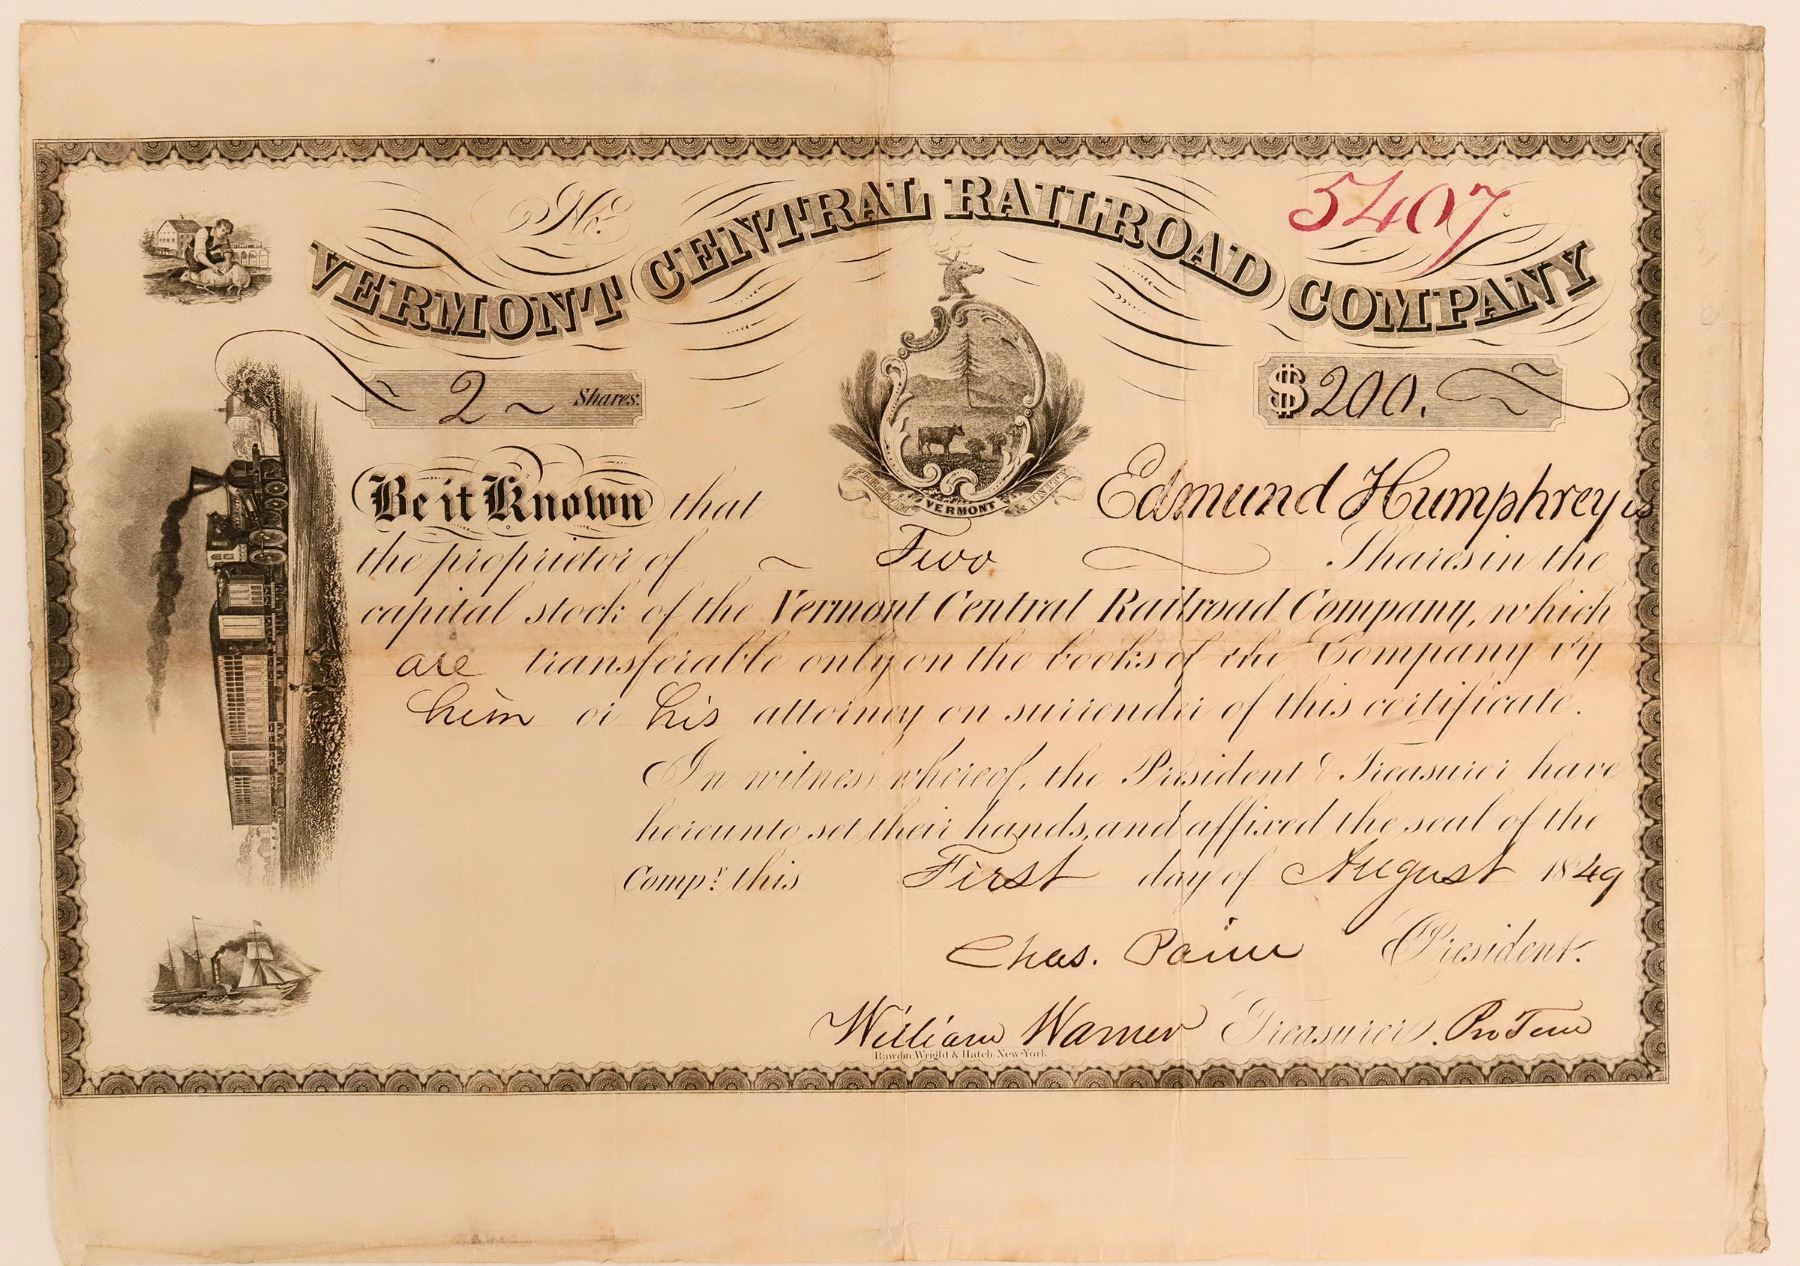 No. 5407
VERMONT CENTRAL RAILROAD COMPANY
2 Shares.
$200.
FREEDOM VERMONT & UNITY
Be it Known that Edmund Humphrey is
the proprietor of Two Shares in the
capital stock of the Vermont Central Railroad Company, which
are transferable only on the books of the Company by
him or his attorney on surrender of this certificate.
In witness whereof, the President & Treasurer have
hereunto set their hands, and affixed the seal of the
Compy. this First day of August 1849
Chas. Paine President.
William Warner Treasurer. Pro Tem
Rawdon, Wright & Hatch New-York